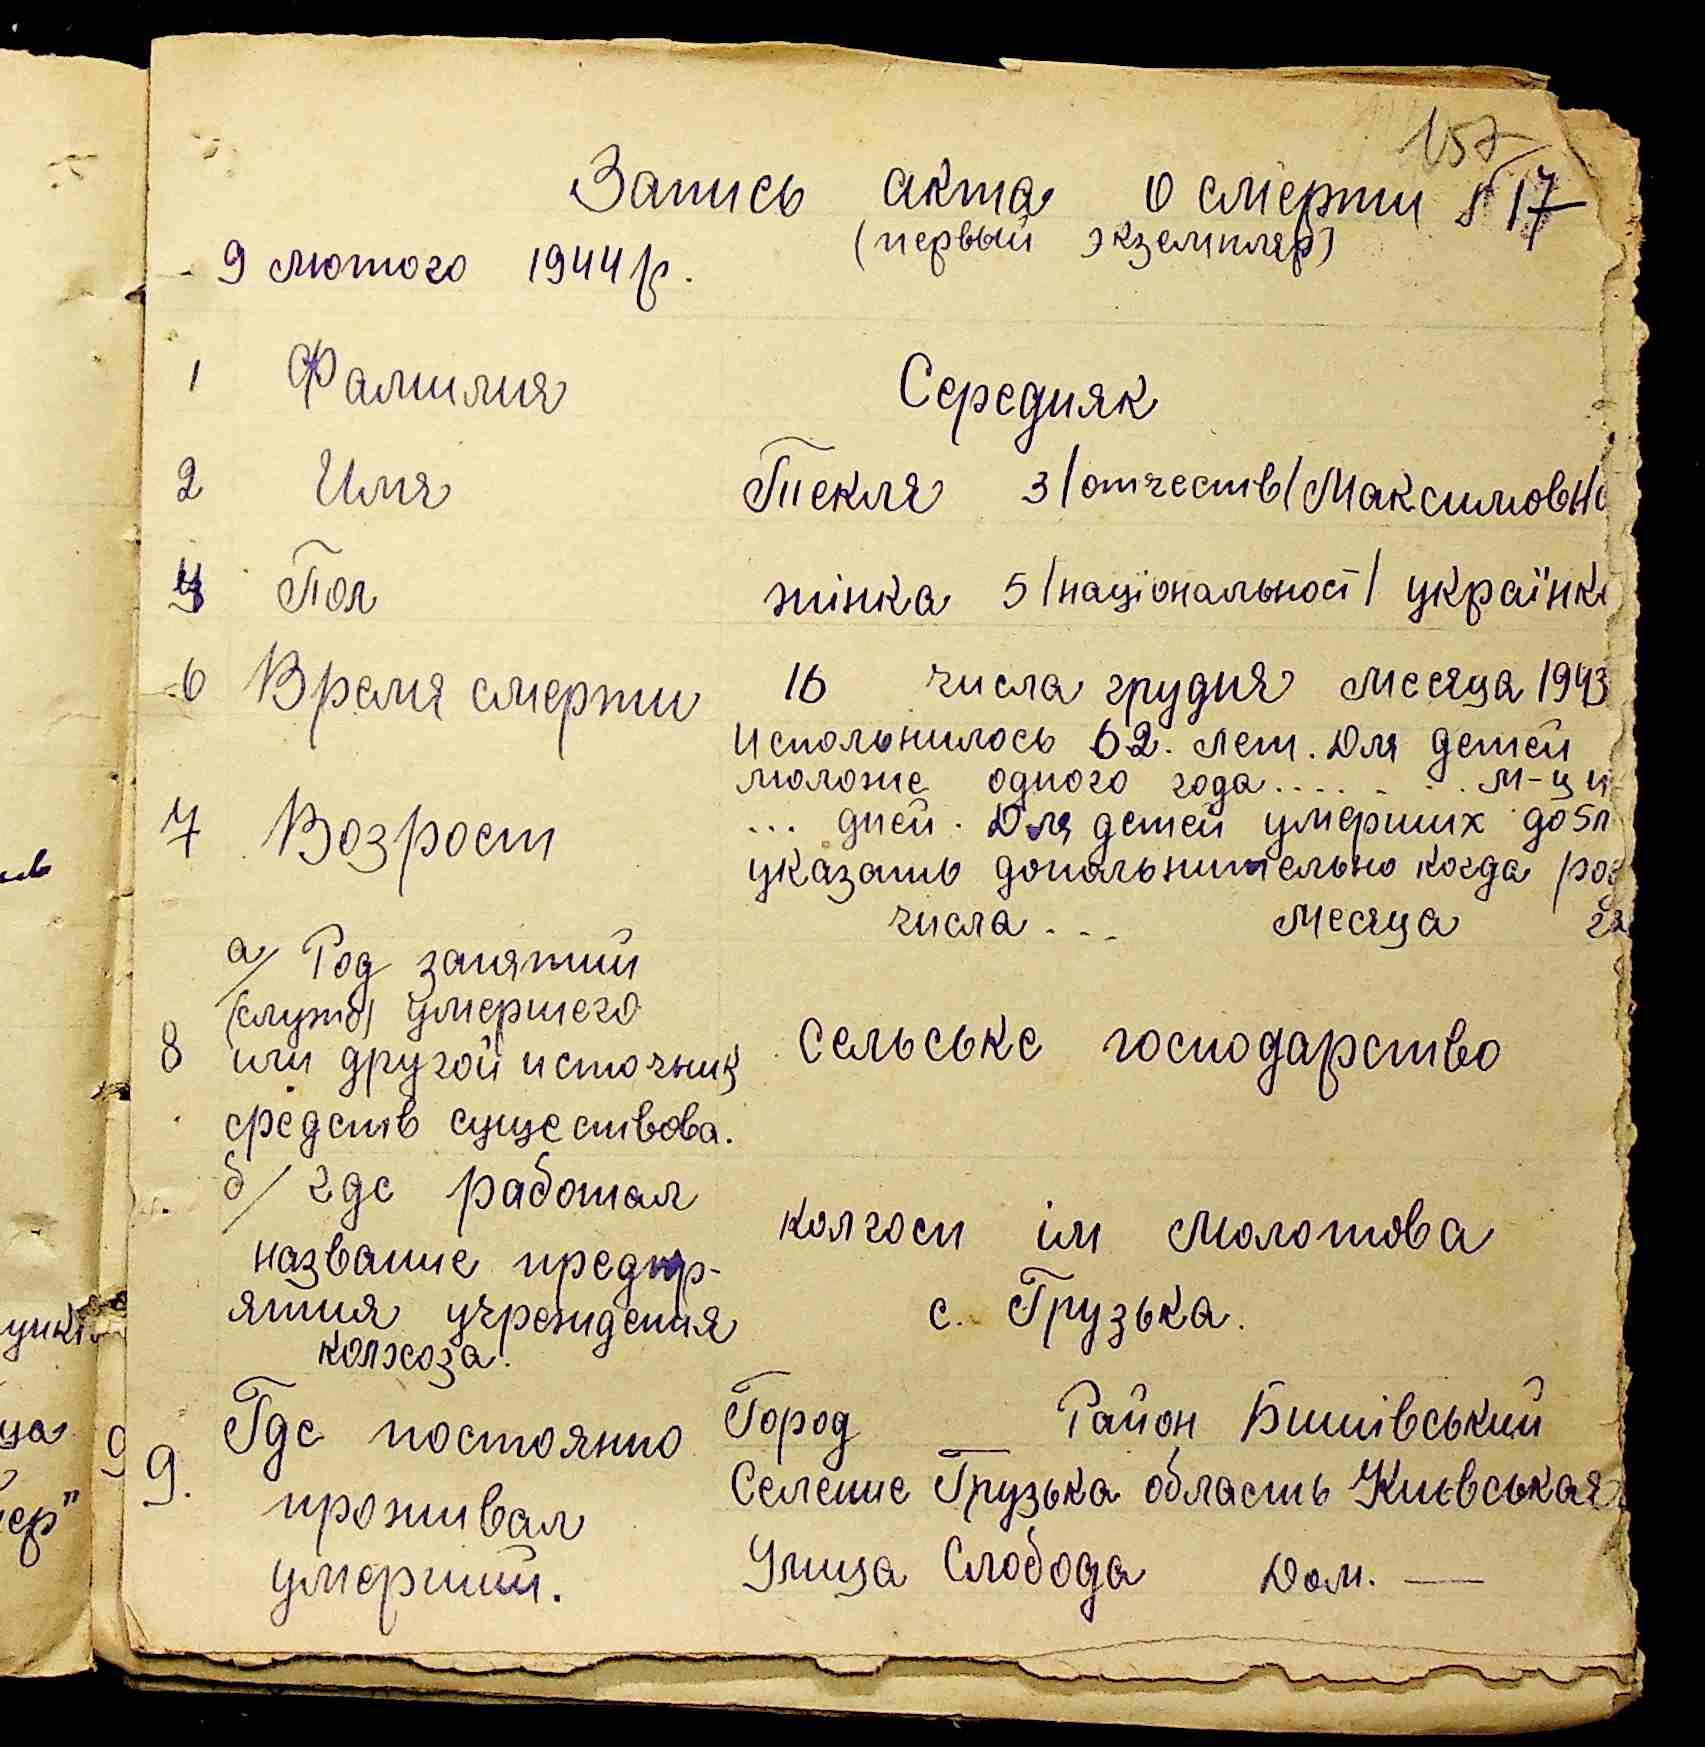 157
Запись акта о смерти № 17
(первый экземпляр)
9 лютого 1944 р.
1 Фамилия Середняк
2 Имя Текля 3/отчеств/ Максимовна
4 Пол жінка 5/національност/ українка
6 Время смерти 16 числа грудня месяца 1943
Испольнилось 62. лет. Для детей
моложе одного года........ м-ци
7 Возрост ... дней. Для детей умерших до 5 л
указать допольнительно когда род
числа ... месяца
а/ Род занятий
(служб) умершего
8 или другой источник Сельське господарство
средств существова.
б/ где работал
колгосп ім Молотова
название предпр-
ятия учреждения с. Грузька.
колхоза.
Где постоянно Город Район Бишівський
9. проживал Селение Грузька область Києвськая
умерший. Улица Слобода Дом. —